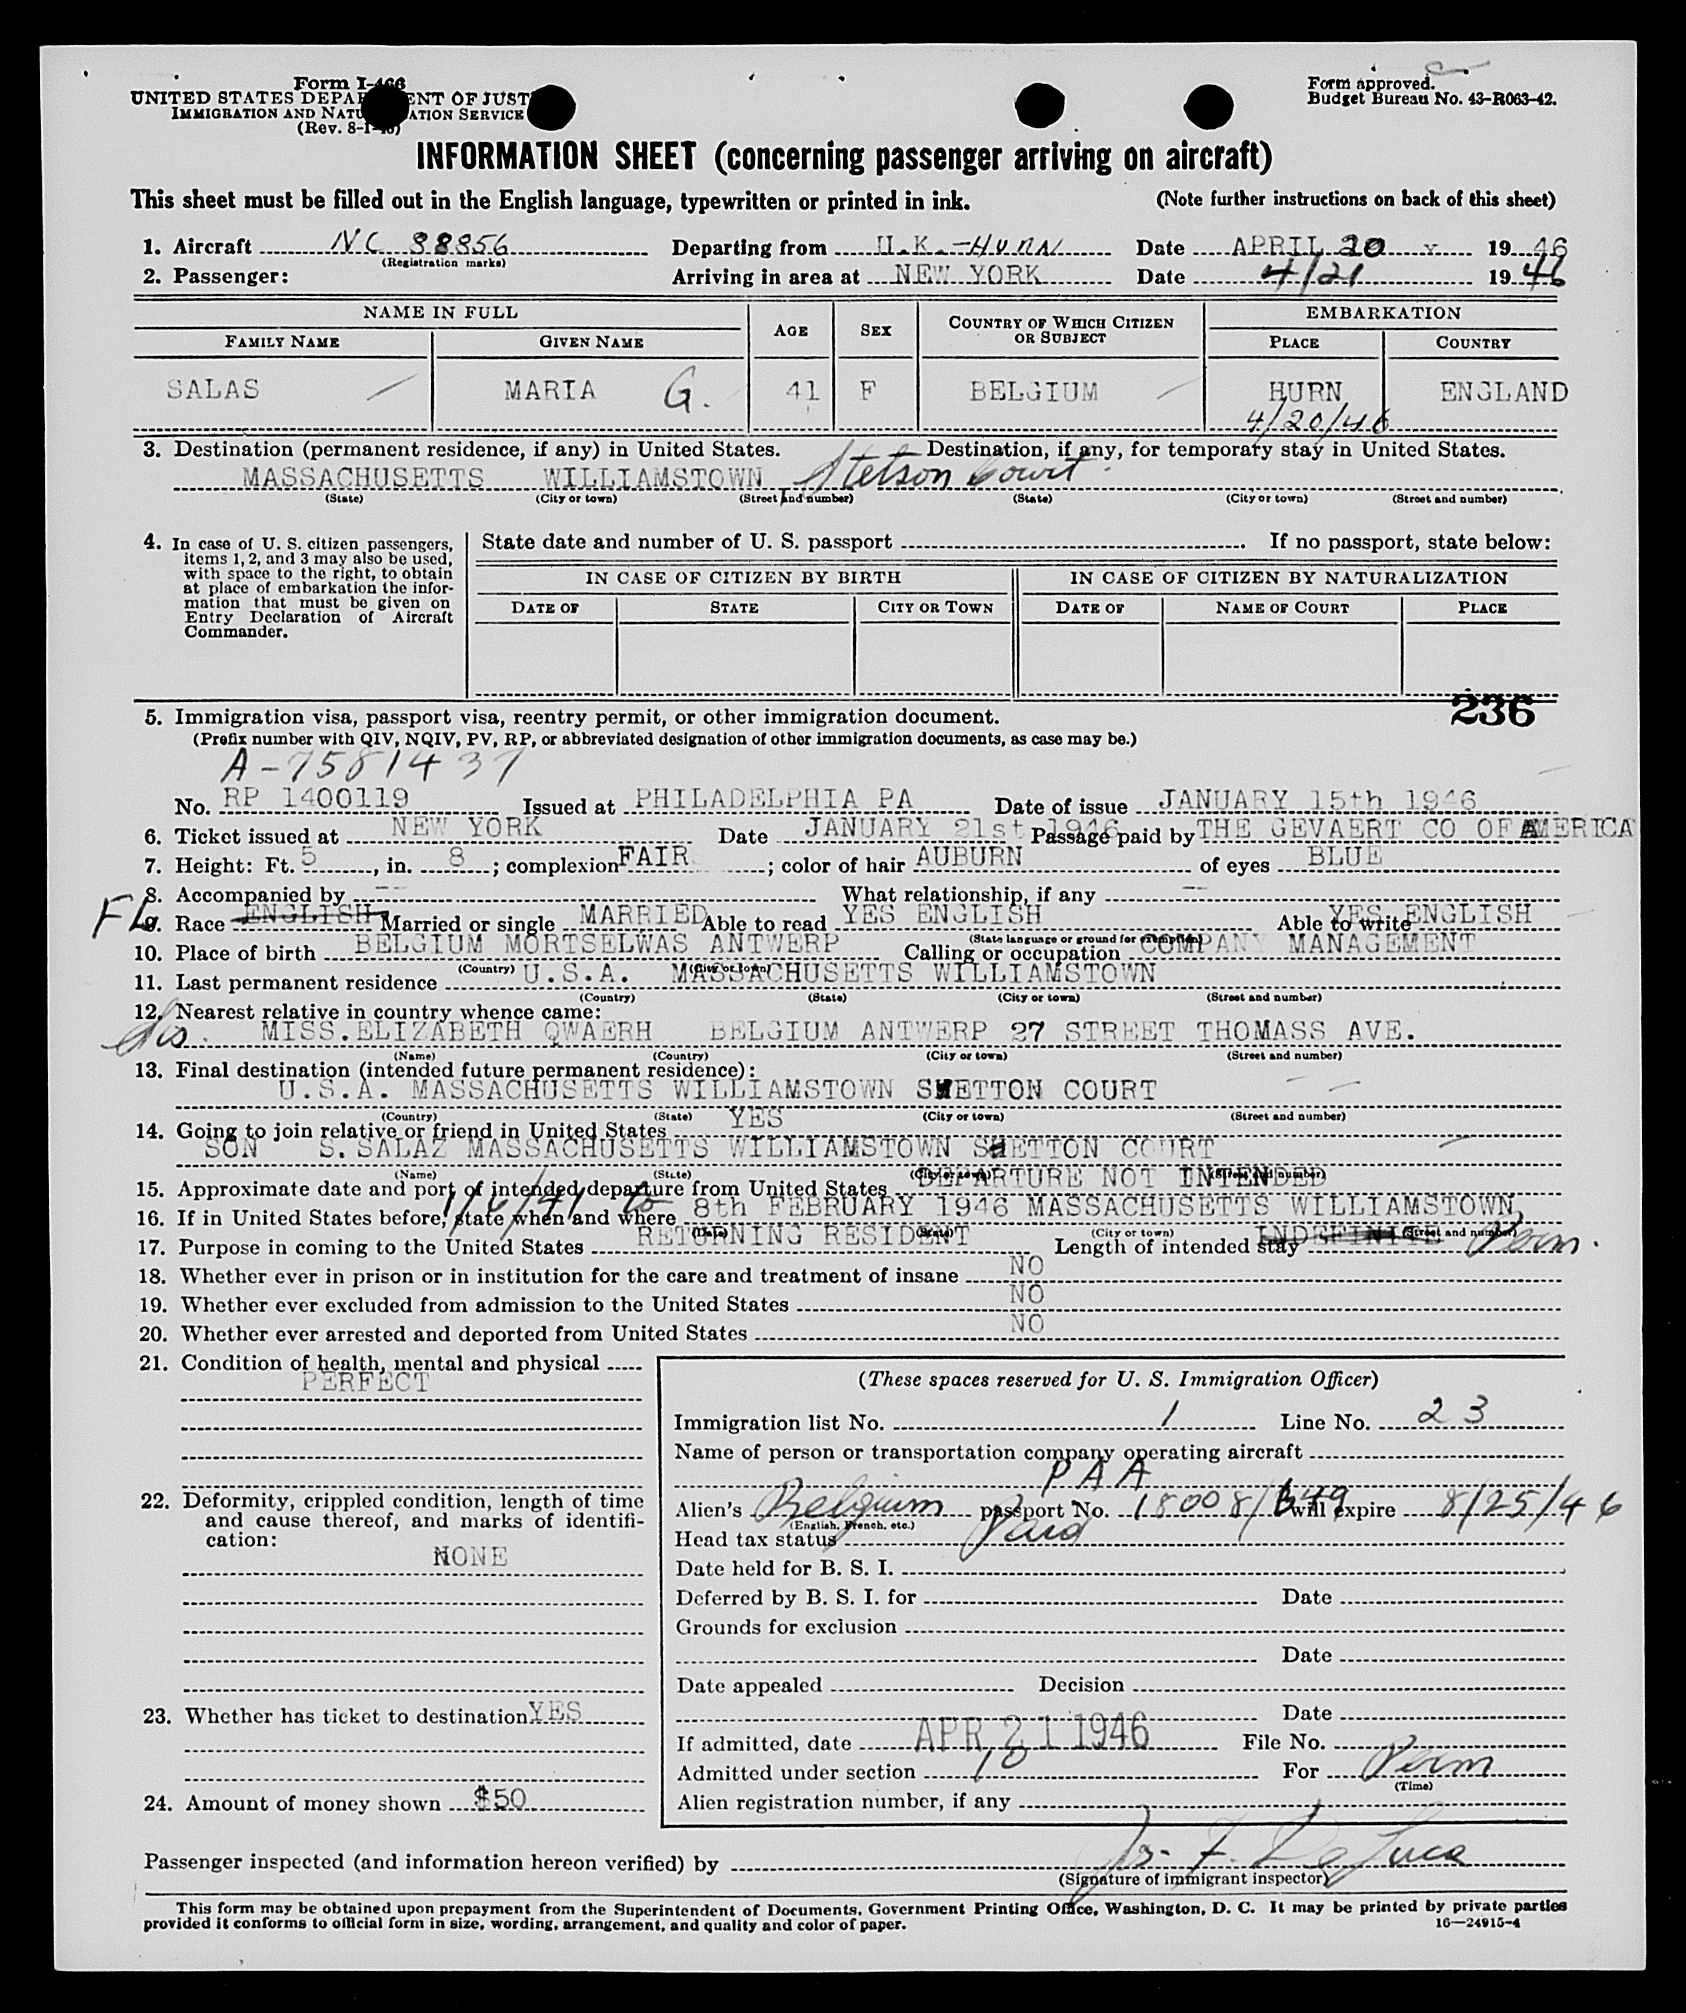 Form I-466
UNITED STATES DEPARTMENT OF JUSTICE
IMMIGRATION AND NATURALIZATION SERVICE
(Rev. 8-1-40)
Form approved.
Budget Bureau No. 43-R063-42.
INFORMATION SHEET (concerning passenger arriving on aircraft)
This sheet must be filled out in the English language, typewritten or printed in ink. (Note further instructions on back of this sheet)
1. Aircraft NC 88856 Departing from U.K.-HURN Date APRIL 20 1946
(Registration marks)
2. Passenger: Arriving in area at NEW YORK Date 4/21 1946
NAME IN FULL AGE SEX COUNTRY OF WHICH CITIZEN OR SUBJECT EMBARKATION
FAMILY NAME GIVEN NAME PLACE COUNTRY
SALAS MARIA G. 41 F BELGIUM HURN ENGLAND
4/20/46
3. Destination (permanent residence, if any) in United States. Destination, if any, for temporary stay in United States.
MASSACHUSETTS WILLIAMSTOWN Stetson Court
(State) (City or town) (Street and number) (State) (City or town) (Street and number)
4. In case of U. S. citizen passengers, items 1, 2, and 3 may also be used, with space to the right, to obtain at place of embarkation the information that must be given on Entry Declaration of Aircraft Commander.
State date and number of U. S. passport . If no passport, state below:
IN CASE OF CITIZEN BY BIRTH IN CASE OF CITIZEN BY NATURALIZATION
DATE OF STATE CITY OR TOWN DATE OF NAME OF COURT PLACE
236
5. Immigration visa, passport visa, reentry permit, or other immigration document.
(Prefix number with QIV, NQIV, PV, RP, or abbreviated designation of other immigration documents, as case may be.)
A-7581437
No. RP 1400119 Issued at PHILADELPHIA PA Date of issue JANUARY 15th 1946
6. Ticket issued at NEW YORK Date JANUARY 21st 1946 Passage paid by THE GEVAERT CO OF AMERICA
7. Height: Ft. 5, in. 8; complexion FAIR; color of hair AUBURN of eyes BLUE
8. Accompanied by -- What relationship, if any --
FL
9. Race ENGLISH Married or single MARRIED Able to read YES ENGLISH Able to write YES ENGLISH
(State language or ground for exemption)
10. Place of birth BELGIUM MORTSELWAS ANTWERP Calling or occupation COMPANY MANAGEMENT
(Country) (City or town)
11. Last permanent residence U.S.A. MASSACHUSETTS WILLIAMSTOWN
(Country) (State) (City or town) (Street and number)
12. Nearest relative in country whence came:
Sis. MISS. ELIZABETH QWAERH BELGIUM ANTWERP 27 STREET THOMASS AVE.
(Name) (Country) (City or town) (Street and number)
13. Final destination (intended future permanent residence):
U.S.A. MASSACHUSETTS WILLIAMSTOWN SHETTON COURT
(Country) (State) (City or town) (Street and number)
14. Going to join relative or friend in United States YES
SON S. SALAZ MASSACHUSETTS WILLIAMSTOWN SHETTON COURT
(Name) (State) (City or town) (Street and number)
15. Approximate date and port of intended departure from United States DEPARTURE NOT INTENDED
16. If in United States before, state when and where 1/6/41 to 8th FEBRUARY 1946 MASSACHUSETTS WILLIAMSTOWN,
(Date) (State) (City or town) (Street and number)
17. Purpose in coming to the United States RETURNING RESIDENT Length of intended stay INDEFINITE Perm.
18. Whether ever in prison or in institution for the care and treatment of insane NO
19. Whether ever excluded from admission to the United States NO
20. Whether ever arrested and deported from United States NO
21. Condition of health, mental and physical
PERFECT
22. Deformity, crippled condition, length of time and cause thereof, and marks of identification:
NONE
23. Whether has ticket to destination YES
24. Amount of money shown $50
(These spaces reserved for U. S. Immigration Officer)
Immigration list No. 1 Line No. 23
Name of person or transportation company operating aircraft
PAA
Alien's Belgium passport No. 18008/649 will expire 8/25/46
(English, French, etc.)
Head tax status Paid
Date held for B. S. I.
Deferred by B. S. I. for Date
Grounds for exclusion
Date
Date appealed Decision
Date
If admitted, date APR 21 1946 File No.
Admitted under section 10 For Perm
(Time)
Alien registration number, if any
Passenger inspected (and information hereon verified) by Jos. F. De Luca
(Signature of immigrant inspector)
This form may be obtained upon prepayment from the Superintendent of Documents, Government Printing Office, Washington, D. C. It may be printed by private parties
provided it conforms to official form in size, wording, arrangement, and quality and color of paper. 16—24915-4